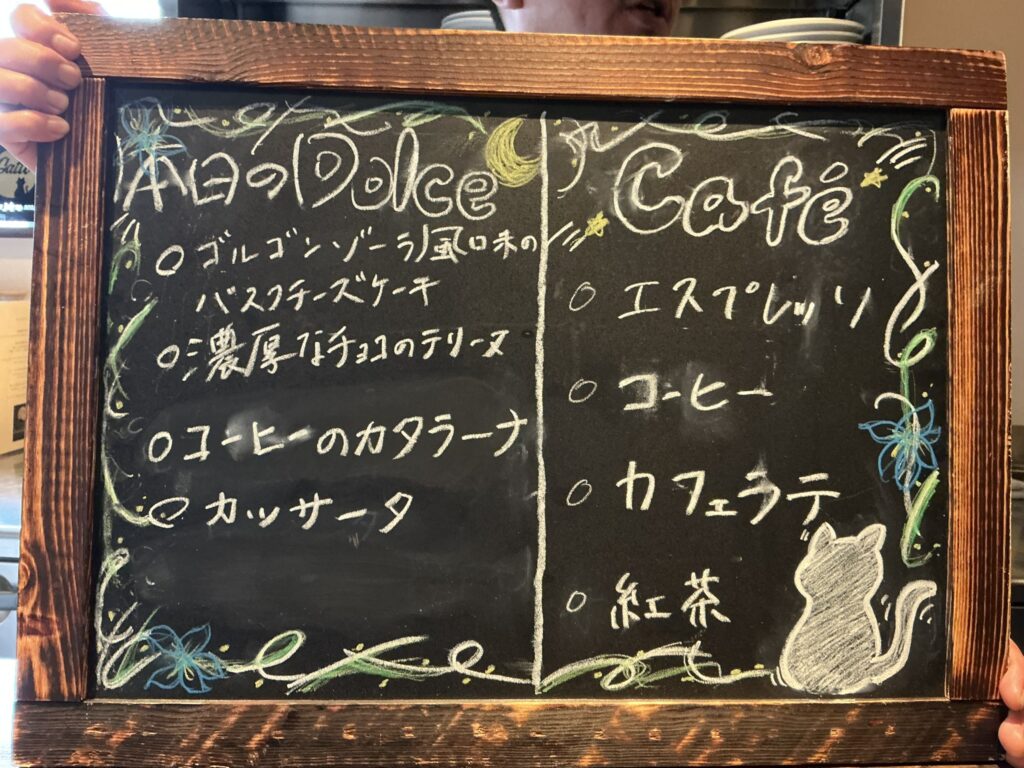 本日のDolce
○ ゴルゴンゾーラ風味の
バスクチーズケーキ
○ 濃厚なチョコのテリーヌ
○ コーヒーのカタラーナ
○ カッサータ
Café
○ エスプレッソ
○ コーヒー
○ カフェラテ
○ 紅茶